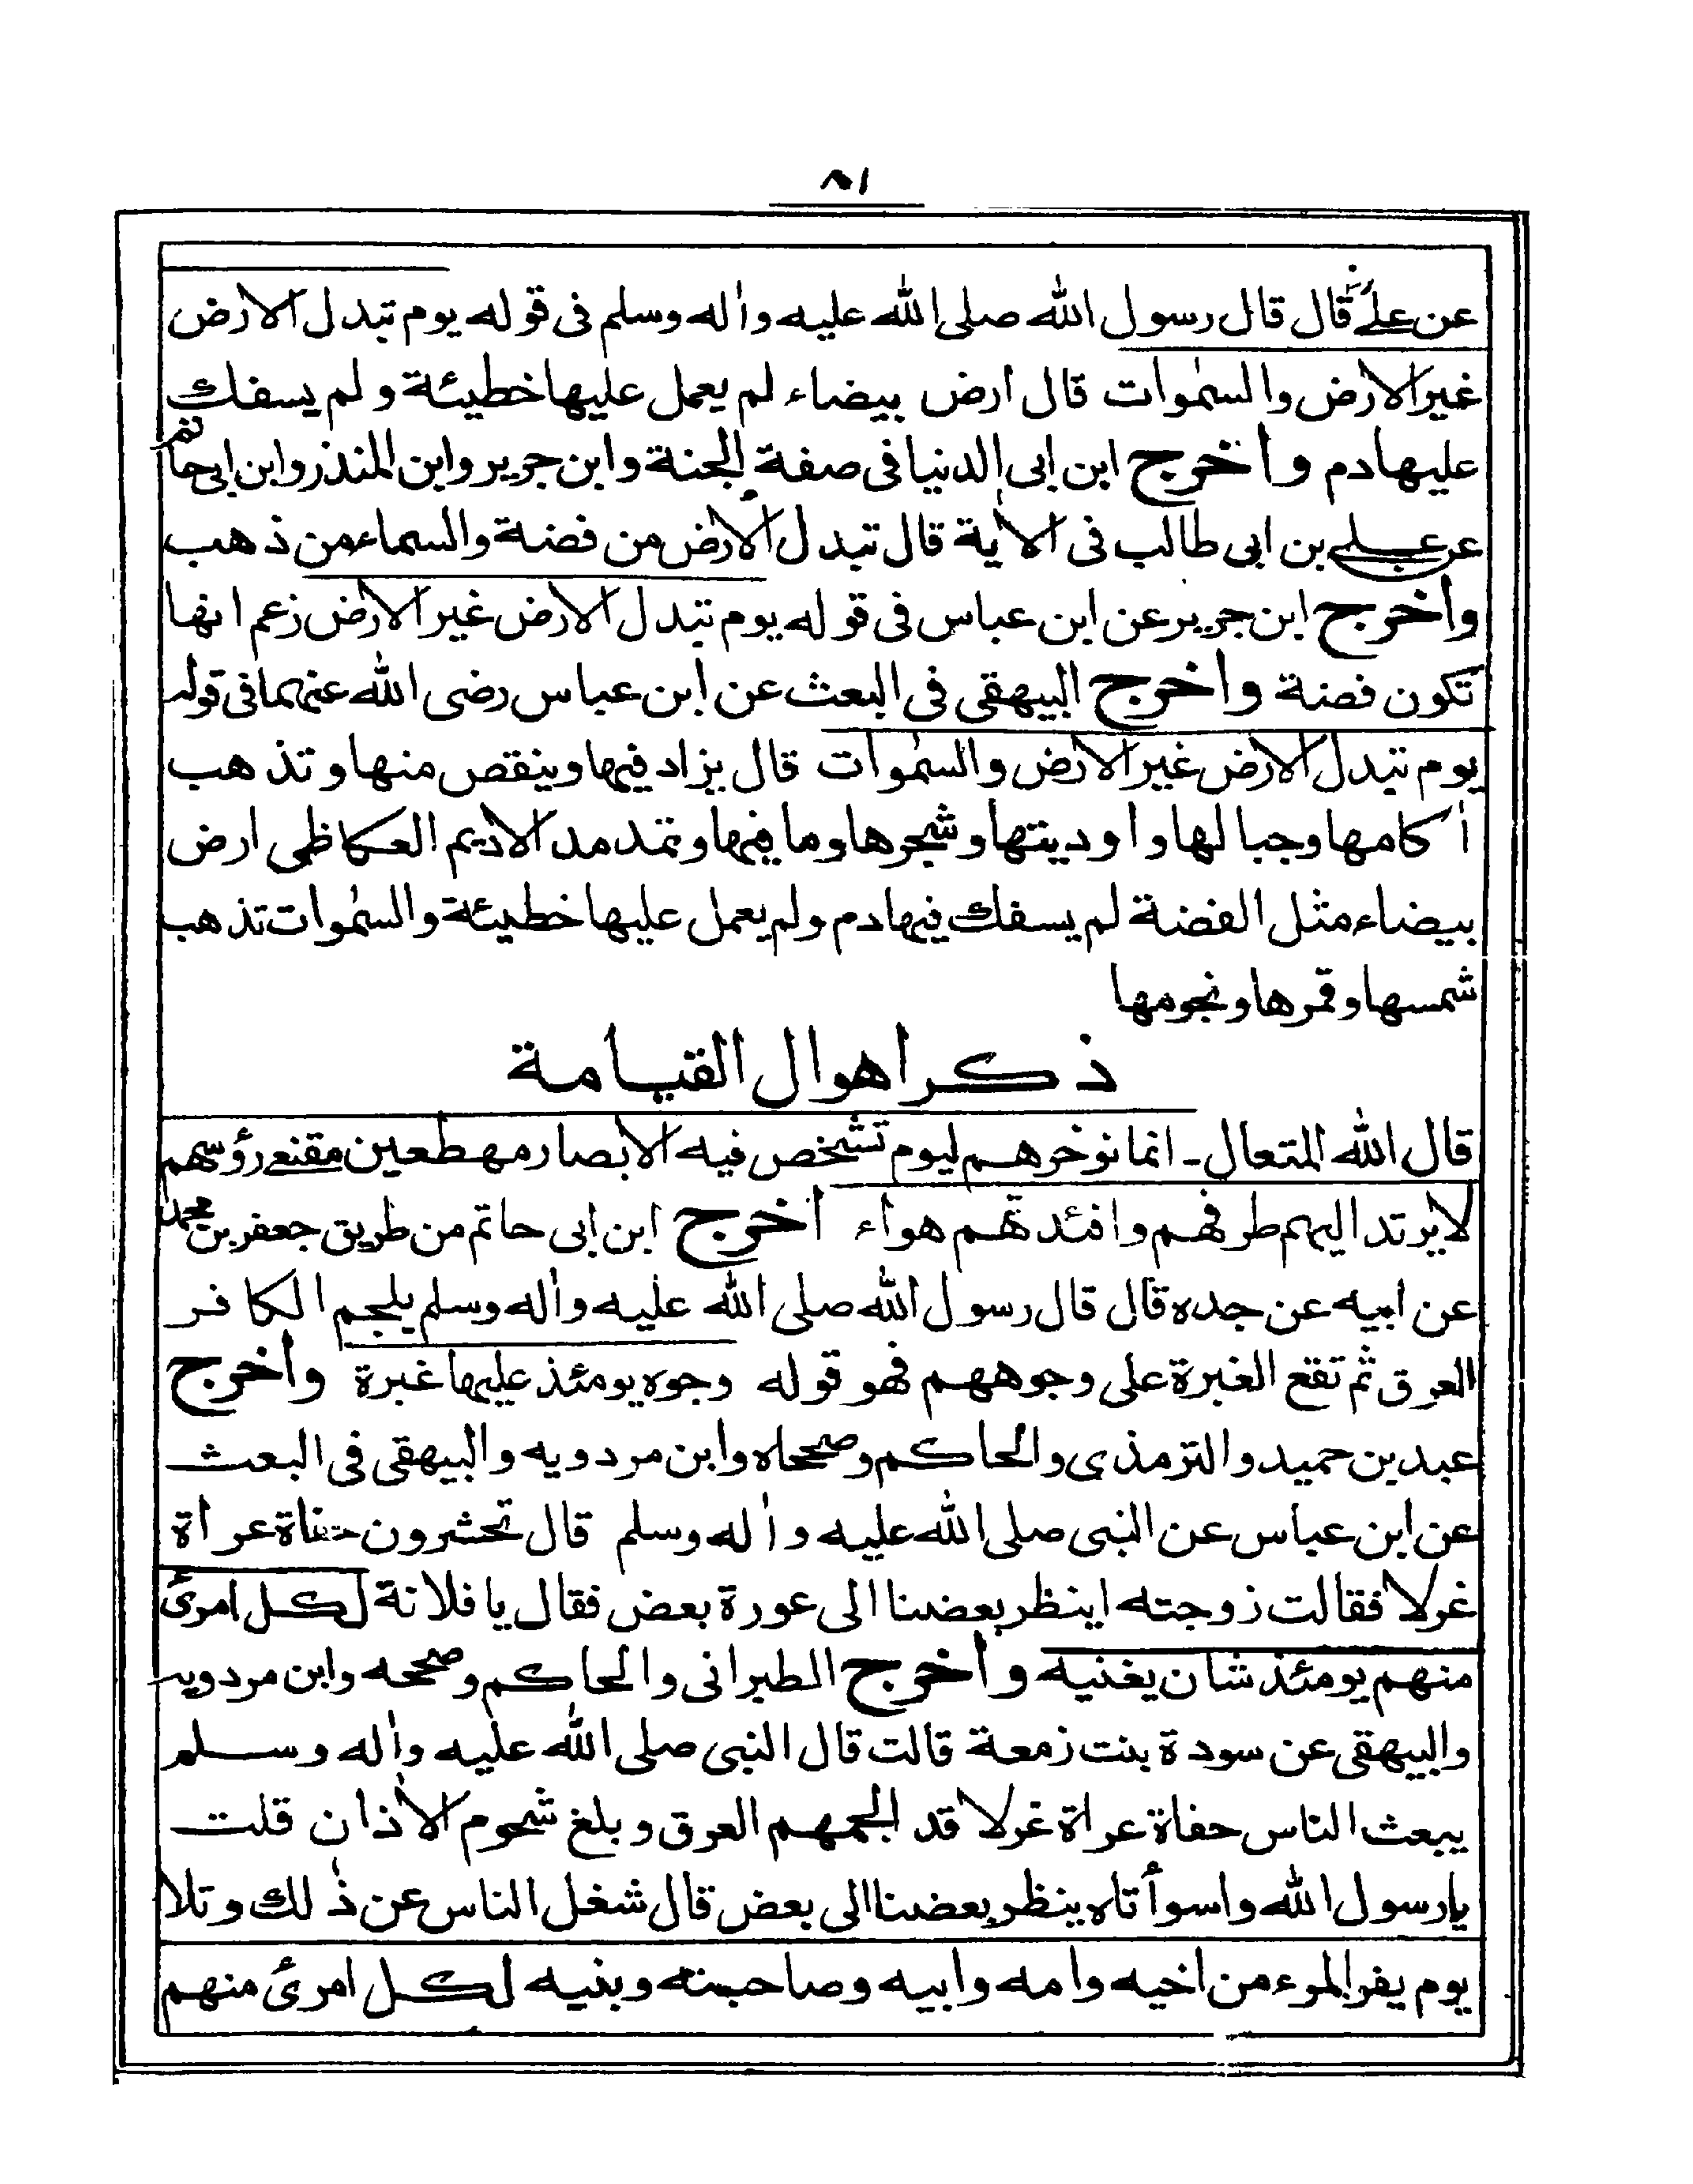 ٨١
عن علی قال قال رسول الله صلی الله علیه واٰله وسلم فی قوله یوم تبدل الارض
غیر الارض والسمٰوات قال ارض بیضاء لم یعمل علیها خطیئة ولم یسفك
علیها دم واخرج ابن ابی الدنیا فی صفة الجنة وابن جریر وابن المنذر وابن ابی حاتم
عن علی بن ابی طالب فی الاٰیة قال تبدل الارض من فضة والسماء من ذهب
واخرج ابن جریر عن ابن عباس فی قوله یوم تبدل الارض غیر الارض زعم انها
تکون فضة واخرج البیهقی فی البعث عن ابن عباس رضی الله عنهما فی قوله
یوم تبدل الارض غیر الارض والسمٰوات قال یزاد فیها وینقص منها وتذهب
اٰکامها وجبالها واودیتها وشجرها وما فیها وتمد مد الادیم العکاظی ارض
بیضاء مثل الفضة لم یسفك فیها دم ولم یعمل علیها خطیئة والسمٰوات تذهب
شمسها وقمرها ونجومها
ذکر اهوال القیامة
قال الله المتعال ـ انما نوخرهم لیوم تشخص فیه الابصار مهطعین مقنعی رؤسهم
لا یرتد الیهم طرفهم وافئدتهم هواء اخرج ابن ابی حاتم من طریق جعفر بن محمد
عن ابیه عن جده قال قال رسول الله صلی الله علیه واٰله وسلم یلجم الکافر
العرق ثم تقع الغبرة علی وجوههم فهو قوله وجوه یومئذ علیها غبرة واخرج
عبد بن حمید والترمذی والحاکم وصححاه وابن مردویه والبیهقی فی البعث
عن ابن عباس عن النبی صلی الله علیه واٰله وسلم قال تحشرون حفاة عراة
غرلا فقالت زوجته اینظر بعضنا الی عورة بعض فقال یا فلانة لکل امرئ
منهم یومئذ شان یغنیه واخرج الطبرانی والحاکم وصححه وابن مردویه
والبیهقی عن سودة بنت زمعة قالت قال النبی صلی الله علیه واٰله وسلم
یبعث الناس حفاة عراة غرلا قد الجمهم العرق وبلغ شحوم الاٰذان قلت
یا رسول الله واسوأتاه ینظر بعضنا الی بعض قال شغل الناس عن ذٰلك وتلا
یوم یفر المرء من اخیه وامه وابیه وصاحبته وبنیه لکل امرئ منهم